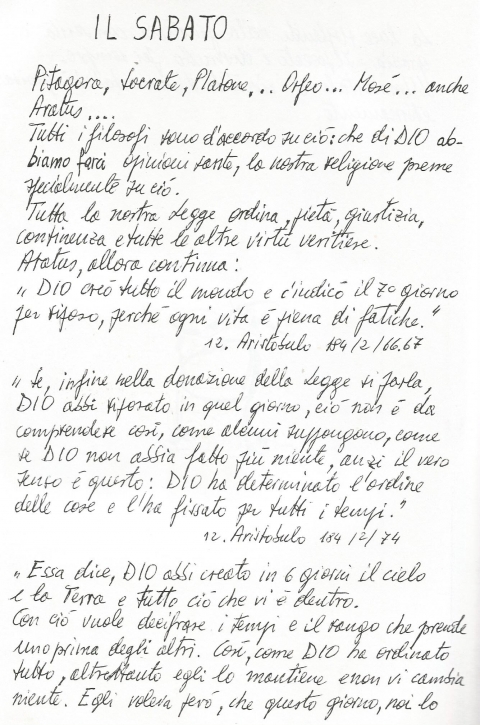 IL SABATO
Pitagora, Socrate, Platone,... Orfeo... Mosé... anche
Aratus....
Tutti i filosofi sono d'accordo su ció: che di DIO ab-
biamo farci opinioni sante, la nostra religione preme
specialmente su ció.
Tutta la nostra Legge ordina, pietá, giustizia,
continenza e tutte le altre virtú veritiere.
Aratus, allora continua:
„ DIO creó tutto il mondo e c'indicó il 7º giorno
per riposo, perché ogni vita é piena di fatiche."
12. Aristobulo 184/2/66.67
„ Se, infine nella donazione della Legge si parla,
DIO abbi riposato in quel giorno, ció non é da
comprendere cosí, come alcuni suppongono, come
se DIO non abbia fatto piú niente, anzi il vero
senso é questo: DIO ha determinato l'ordine
delle cose e l'ha fissato per tutti i tempi."
12. Aristobulo 184/2/74
„ Essa dice, DIO abbi creato in 6 giorni il cielo
e la Terra e tutto ció che vi é dentro.
Con ció vuole decifrare i tempi e il rango che prende
uno prima degli altri. Cosí, come DIO ha ordinato
tutto, altrettanto egli lo mantiene e non vi cambia
niente. Egli voleva peró, che questo giorno, noi lo